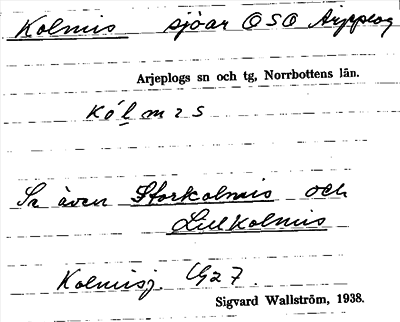 Kolmis sjöar OSO Arjeplog
Arjeplogs sn och tg, Norrbottens län.
kó́l m ɩ s
Se även Storkolmis och
Lillkolmis
Kolmisj. G27.
Sigvard Wallström, 1938.